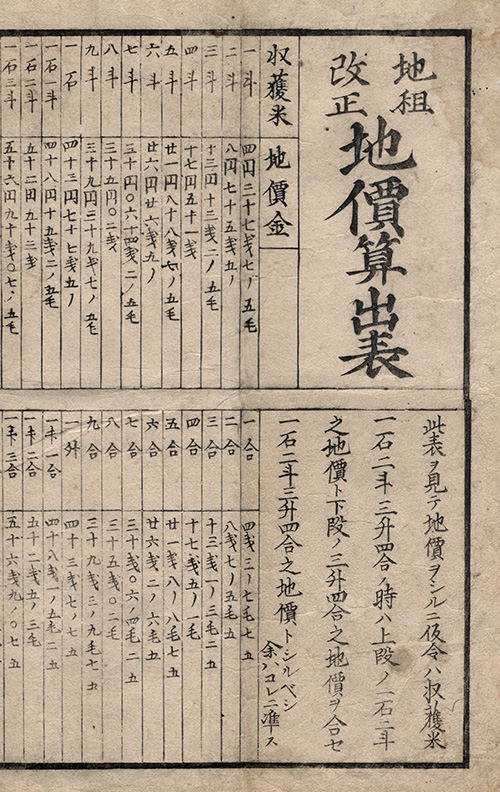 地租
改正
地價算出表
収獲米 地價金
一斗 四円三十七戋七ノ五毛
二斗 八円七十五戋五ノ
三斗 十三円十三戋二ノ五毛
四斗 十七円五十一戋
五斗 廿一円八十八戋七ノ五毛
六斗 廿六円廿六戋五ノ
七斗 三十円〇六十四戋二ノ五毛
八斗 三十五円〇二戋
九斗 三十九円三十九戋七ノ五毛
一石 四十三円七十七戋五ノ
一石一斗 四十八円十五戋二ノ五毛
一石二斗 五十二円五十三戋
一石三斗 五十六円九十戋〇七ノ五毛
此表ヲ見テ地價ヲシルニ仮令ハ収獲米
一石二斗三升四合ノ時ハ上段ノ一石二斗
之地價ト下段ノ三升四合之地價ヲ合セ
一石二斗三升四合之地價トシルベシ
余ハコレニ準ス
一合 四戋三ノ七毛七五
二合 八戋七ノ五毛五
三合 十三戋一ノ三毛二五
四合 十七戋五ノ一毛
五合 廿一戋八ノ八毛七五
六合 廿六戋二ノ六毛五
七合 三十戋〇六ノ四毛二五
八合 三十五戋〇二毛
九合 三十九戋三ノ九毛七五
一升 四十三戋七ノ七五
一升一合 四十八戋一ノ五毛二五
一升二合 五十二戋五ノ三毛
一升三合 五十六戋九〇七五